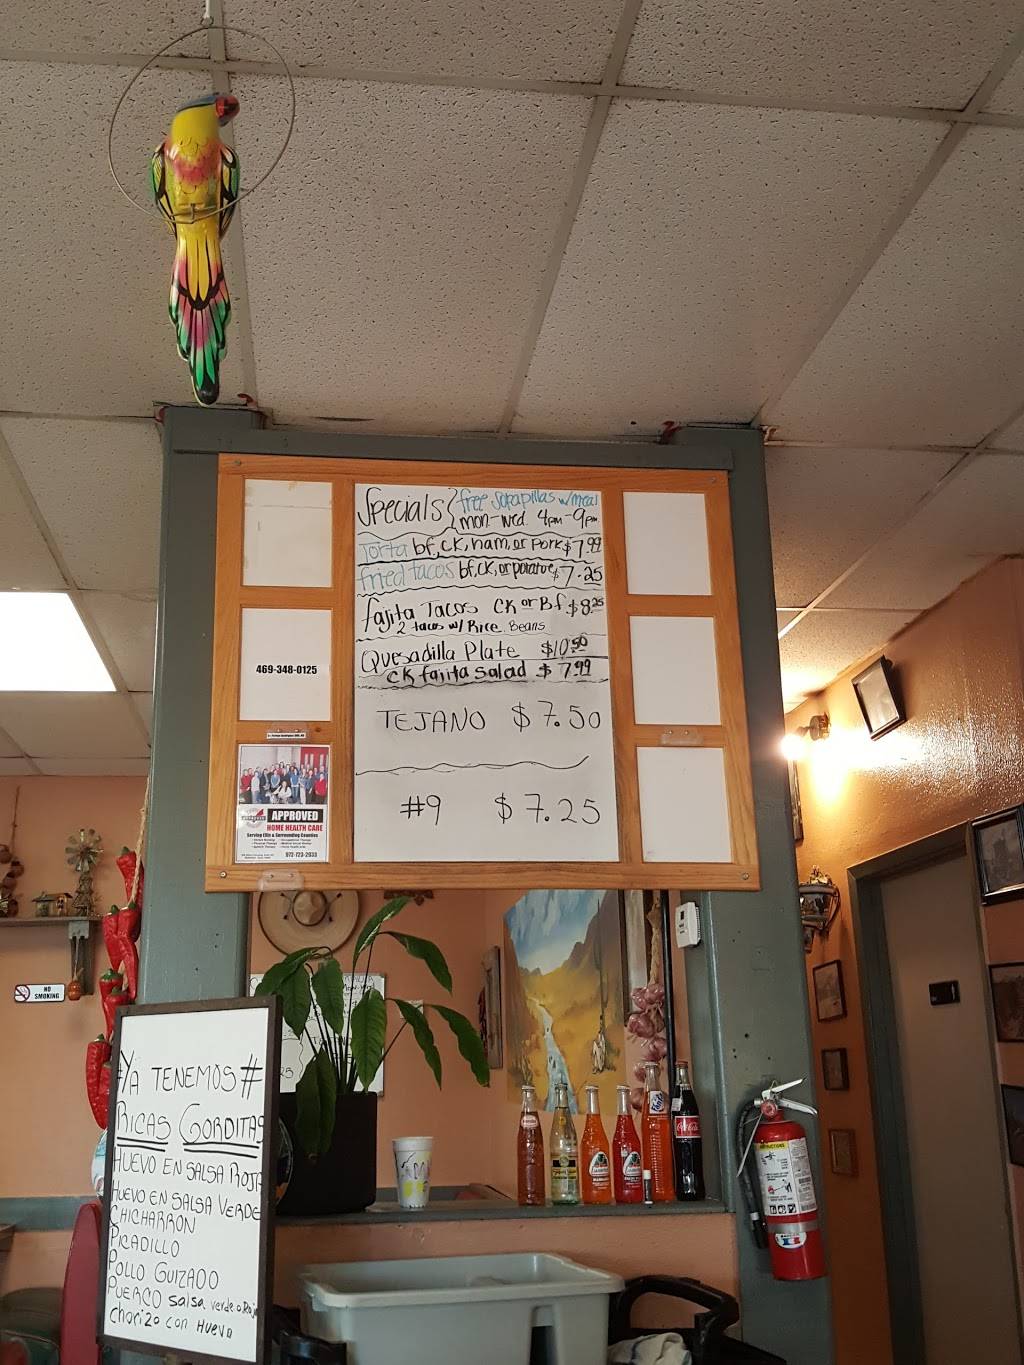 Specials free Sopapillas w/meal
mon-wed. 4pm-9pm
Torta bf, ck, ham, or Pork $7.99
fried tacos bf, ck, or potatoe $7.25
fajita Tacos ck or Bf. $8.25
2 tacos w/ Rice Beans
Quesadilla Plate $10.50
ck fajita salad $7.99
TEJANO $7.50
#9 $7.25
469-348-0125
APPROVED
HOME HEALTH CARE
Serving Ellis & Surrounding Counties
972-723-2033
NO
SMOKING
#YA TENEMOS#
RICAS GORDITAS
HUEVO EN SALSA ROJA
HUEVO EN SALSA VERDE
CHICHARRON
PICADILLO
POLLO GUIZADO
PUERCO salsa verde o Roja
Chorizo con Huevo
Fanta
Coca-Cola